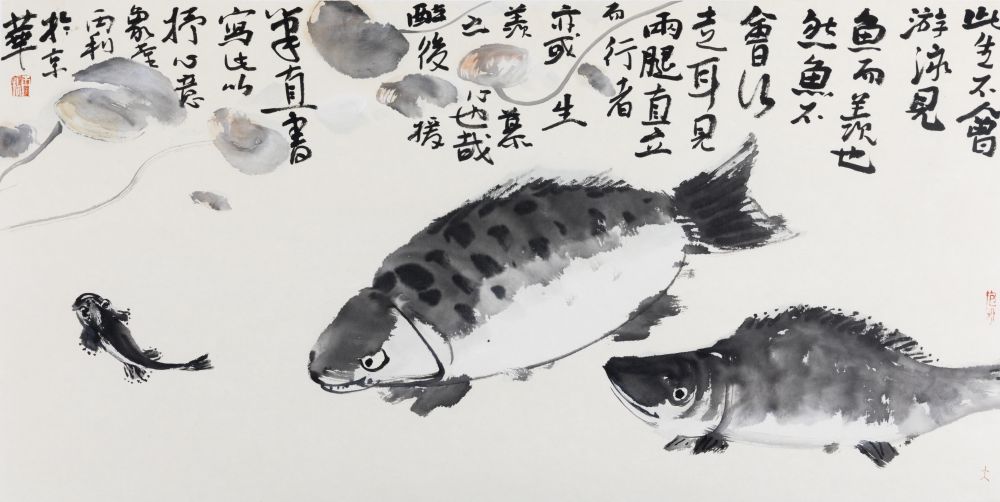 此生不會
游泳見
魚而羨也
然魚不
會行
走耳見
兩腿直立
而行者
亦或生
羨慕
之心也哉
醉後援
筆直書
寫此以
抒心意
丙利
於京
華